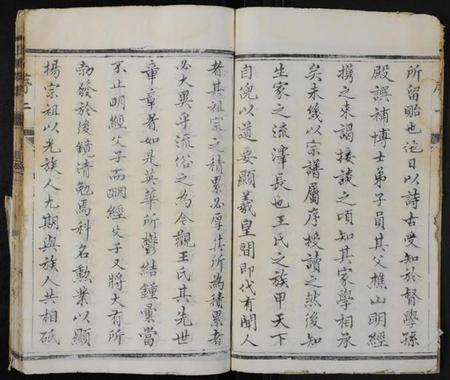 所留貽也迄日以詩古受知於督學孫
殿譔補博士弟子員其父樵山明經
携之來謁接談之頃知其家學相承
矣未幾以宗譜屬序授讀之然後知
生家之流澤長也王氏之族甲天下
自倪以道要顯羲皇間即代有聞人
者其祖宗之積累必厚其所為積累者
必大異乎流俗之為今觀王氏其先世
章章者如是英華所鬱結鍾彙當
不止明經父子而明經父子又將大有所
勃發於後鏡清勉焉科名勲業以顯
揚宗祖以光族人尤期與族人共相砥
序二